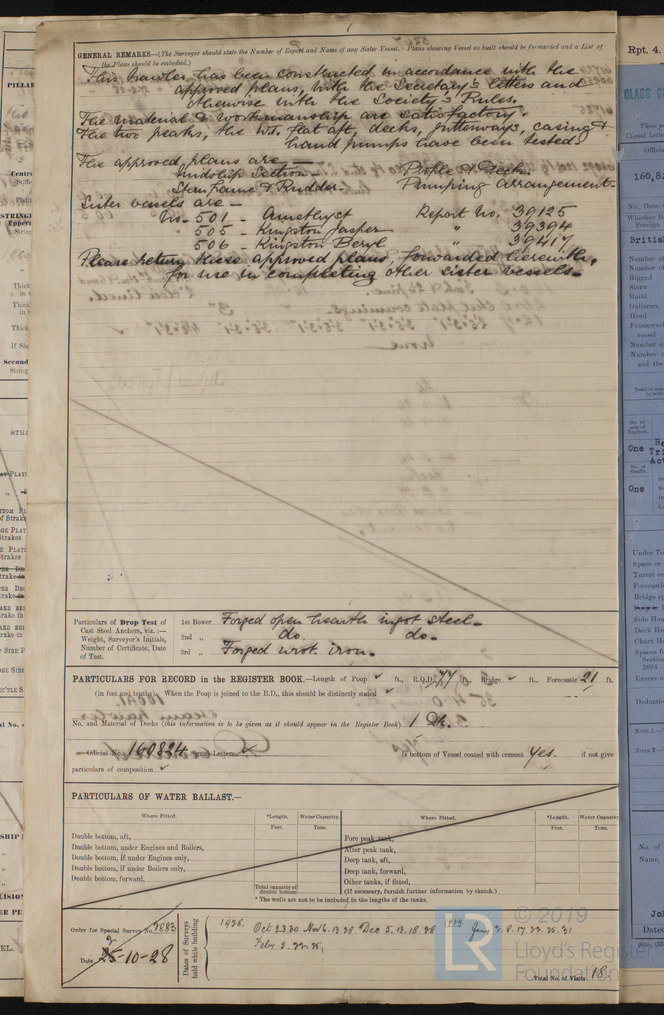 GENERAL REMARKS—(The Surveyor should state the Number of Report and Name of any Sister Vessel. Plans showing Vessel as built should be forwarded and a List of
the Plans should be embodied.)
This trawler has been constructed in accordance with the
approved plans, with the Secretary's letters and
otherwise with the Society's Rules.
The material & workmanship are satisfactory.
The two peaks, the W.T. flat aft, decks, gutterways, casing &
hand pumps have been tested.
The approved plans are —
Midship Section — Profile & Deck.
Stern Frame & Rudder. Pumping arrangement.
Sister vessels are —
No. 501 - Amethyst Report No. 39125
" 505 - Kingston Jasper " 39394
506 - Kingston Beryl " 39417
Please return these approved plans, forwarded herewith,
for use in completing other sister vessels.
Particulars of Drop Test of
Cast Steel Anchors, viz.:—
Weight, Surveyor's Initials,
Number of Certificate, Date
of Test.
1st Bower Forged open hearth ingot steel.
2nd " do. do.
3rd " Forged wrot. iron.
PARTICULARS FOR RECORD in the REGISTER BOOK.—Length of Poop ✓ ft., R.Q.D. 77 ft., Bridge ✓ ft., Forecastle 21 ft.
(in feet and tenths). When the Poop is joined to the B.D., this should be distinctly stated ✓
No. and Material of Decks (this information is to be given as it should appear in the Register Book) 1 Dk.
Official No. 160824 Letters ✓ Is bottom of Vessel coated with cement Yes. if not give
particulars of composition ✓
PARTICULARS OF WATER BALLAST.—
Where Fitted. *Length. Water Capacity. Where Fitted. *Length. Water Capacity
Feet. Tons. Feet. Tons.
Double bottom, aft, Fore peak tank,
Double bottom, under Engines and Boilers, After peak tank,
Double bottom, if under Engines only, Deep tank, aft,
Double bottom, if under Boilers only, Deep tank, forward,
Double bottom, forward, Other tanks, if fitted,
Total capacity of double bottom (If necessary, furnish further information by sketch.)
* The wells are not to be included in the lengths of the tanks.
Order for Special Survey No. 7883
Date 25-10-28
Dates of Surveys held while building
1928. Oct 23.30. Nov 6.13.28. Dec 5.13.18.28 1929 Jany 2.8.17.22.25.31
Feby 5.22.25,
Total No. of Visits 18.
© 2019
Lloyd's Register
Foundation
LR
Rpt. 4.
160,82
British
One
One